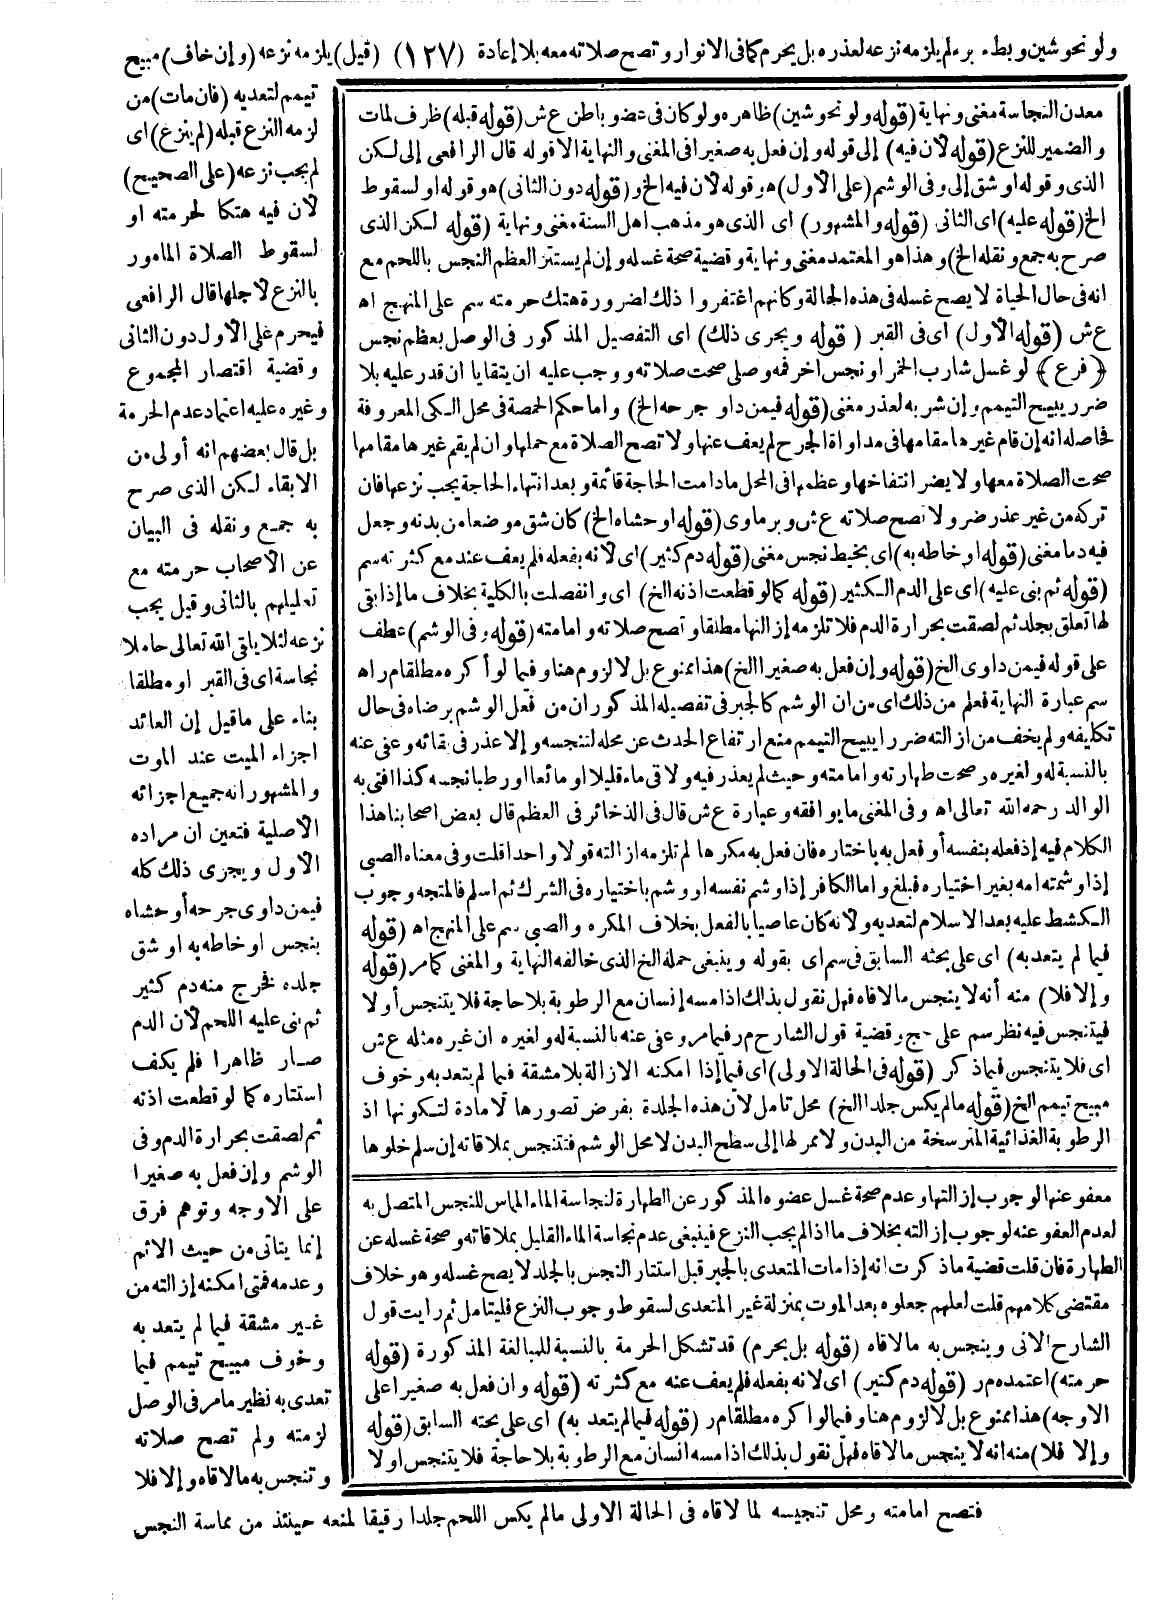 ولو نحو شين وبطء برء لم يلزمه نزعه لعذره بل يحرم كما في الانوار وتصح صلاته معه بلا إعادة (١٢٧) (قيل) يلزمه نزعه (وإن خاف) مبيح
تيمم لتعديه (فان مات) من
لزمه النزع قبله (لم ينزع) اى
لم يجب نزعه (على الصحيح)
لأن فيه هتكا لحرمته او
لسقوط الصلاة المامور
بالنزع لاجلها قال الرافعى
فيحرم على الأول دون الثانى
وقضية اقتصار المجموع
وغيره عليه اعتماد عدم الحرمة
بل قال بعضهم انه أولى من
الابقاء لكن الذى صرح
به جمع ونقله فى البيان
عن الأصحاب حرمته مع
تعليلهم بالثانى وقيل يجب
نزعه لئلا يلقى الله تعالى حاملا
نجاسة اى فى القبر او مطلقا
بناء على ماقيل إن العائد
اجزاء الميت عند الموت
والمشهور انه جميع اجزائه
الأصلية فتعين ان مراده
الأول ويجرى ذلك كله
فيمن داوى جرحه أو حشاه
بنجس او خاطه به او شق
جلده فخرج منه دم كثير
ثم بنى عليه اللحم لأن الدم
صار ظاهرا فلم يكف
استتاره كما لو قطعت اذنه
ثم لصقت بحرارة الدم وفى
الوشم وإن فعل به صغيرا
على الاوجه وتوهم فرق
إنما يتاتى من حيث الاثم
وعدمه فمتى امكنه إزالته من
غير مشقة فيما لم يتعد به
وخوف مبيح تيمم فيما
تعدى به نظير مامر فى الوصل
لزمته ولم تصح صلاته
وتنجس به مالاقاه وإلا فلا
فتصح امامته ومحل تنجيسه لما لاقاه فى الحالة الاولى مالم يكس اللحم جلدا رقيقا لمنعه حينئذ من مماسة النجس
معدن النجاسة مغنى ونهاية (قوله ولو نحو شين) ظاهره ولو كان فى عضو باطن ع ش (قوله قبله) ظرف لمات
والضمير للنزع (قوله لان فيه) إلى قوله وإن فعل به صغيرا فى المغنى والنهاية الا قوله قال الرافعى إلى لكن
الذى وقوله او شق إلى وفى الوشم (على الأول) هو قوله لأن فيه الخ و (قوله دون الثانى) هو قوله او لسقوط
الخ (قوله عليه) اى الثانى (قوله والمشهور) اى الذى هو مذهب اهل السنة مغنى ونهاية (قوله لكن الذى
صرح به جمع ونقله الخ) وهذا هو المعتمد مغنى ونهاية وقضية صحة غسله وإن لم يستتر العظم النجس باللحم مع
انه فى حال الحياة لا يصح غسله فى هذه الحالة وكانهم اغتفروا ذلك لضرورة هتك حرمته سم على المنهج اه
ع ش (قوله الأول) اى فى القبر (قوله ويجرى ذلك) اى التفصيل المذكور فى الوصل بعظم نجس
﴿فرع﴾ لو غسل شارب الخمر او نجس اخر فمه وصلى صحت صلاته ووجب عليه ان يتقايا ان قدر عليه بلا
ضرر يبيح التيمم وإن شربه لعذر مغنى (قوله فيمن داو جرحه الخ) واما حكم الحمصة فى محل الكى المعروفة
فحاصله انه إن قام غيرها مقامها فى مداواة الجرح لم يعف عنها ولا تصح الصلاة مع حملها وان لم يقم غيرها مقامها
صحت الصلاة معها ولا يضر انتفاخها وعظمها فى المحل مادامت الحاجة قائمة وبعد انتهاء الحاجة يجب نزعها فان
تركه من غير عذر ضر ولا تصح صلاته ع ش وبرماوى (قوله او حشاه الخ) كان شق موضعا من بدنه وجعل
فيه دما مغنى (قوله او خاطه به) اى بخيط نجس مغنى (قوله دم كثير) اى لانه بفعله فلم يعف عنه مع كثرته سم
(قوله ثم بنى عليه) اى على الدم الكثير (قوله كما لو قطعت اذنه الخ) اى وانفصلت بالكلية بخلاف ما إذا بقى
لها تعلق بجلد ثم لصقت بحرارة الدم فلا تلزمه إزالتها مطلقا وتصح صلاته وامامته (قوله وفى الوشم) عطف
على قوله فيمن داوى الخ (قوله وإن فعل به صغيرا الخ) هذا ممنوع بل لا لزوم هنا وفيما لو أكره مطلقا م ر اه
سم عبارة النهاية فعلم من ذلك اى من ان الوشم كالجبر فى تفصيله المذكور ان من فعل الوشم برضاه فى حال
تكليفه ولم يخف من ازالته ضررا يبيح التيمم منع ارتفاع الحدث عن محله لتنجسه وإلا عذر فى بقائه وعفى عنه
بالنسبة له ولغيره وصحت طهارته وامامته وحيث لم يعذر فيه ولاقى ماء قليلا او مائعا او رطبا نجسه كذا افتى به
الوالد رحمه الله تعالى اه وفى المغنى مايوافقه وعبارة ع ش قال فى الذخائر فى العظم قال بعض اصحابنا هذا
الكلام فيه إذ فعله بنفسه أو فعل به باختياره فان فعل به مكرها لم تلزمه ازالته قولا واحدا قلت وفى معناه الصبى
إذا وشمته امه بغير اختياره فبلغ واما الكافر إذا وشم نفسه او وشم باختياره فى الشرك ثم اسلم فالمتجه وجوب
الكشط عليه بعد الاسلام لتعديه ولانه كان عاصيا بالفعل بخلاف المكره والصبى سم على المنهج اه (قوله
فيما لم يتعد به) اى على بحثه السابق فى سم اى بقوله وينبغى حمله الخ الذى خالفه النهاية والمغنى كمامر (قوله
وإلا فلا) منه أنه لا ينجس مالاقاه فهل نقول بذلك اذا مسه إنسان مع الرطوبة بلا حاجة فلا يتنجس أولا
فيتنجس فيه نظر سم على حج وقضية قول الشارح م ر فيمامر وعفى عنه بالنسبة له ولغيره ان غيره مثله ع ش
اى فلا يتنجس فيماذكر (قوله فى الحالة الاولى) اى فيما إذا امكنه الازالة بلا مشقة فيما لم يتعد به وخوف
مبيح تيمم الخ (قوله مالم يكس جلدا الخ) محل تامل لأن هذه الجلدة بفرض تصورها لا مادة لتكونها اذ
الرطوبة الغذائية المترسخة من البدن ولا ممر لها إلى سطح البدن لا محل الوشم فتتنجس بملاقاته إن سلم خلوها
معفو عنها لوجوب إزالتها وعدم صحة غسل عضوه المذكور عن الطهارة لنجاسة الماء الماس للنجس المتصل به
لعدم العفو عنه لوجوب إزالته بخلاف ما اذا لم يجب النزع فينبغى عدم نجاسة الماء القليل بملاقاته وصحة غسله عن
الطهارة فان قلت قضية ماذكرت انه إذا مات المتعدى بالجبر قبل استتار النجس بالجلد لا يصح غسله وهو خلاف
مقتضى كلامهم قلت لعلهم جعلوه بعد الموت بمنزلة غير المتعدى لسقوط وجوب النزع فليتامل ثم رايت قول
الشارح الاتى وينجس به مالاقاه (قوله بل يحرم) قد تشكل الحرمة بالنسبة للمبالغة المذكورة (قوله
حرمته) اعتمده م ر (قوله دم كثير) اى لانه بفعله فلم يعف عنه مع كثرته (قوله وان فعل به صغيرا على
الاوجه) هذا ممنوع بل لا لزوم هنا وفيما لو اكره مطلقا م ر (قوله فيما لم يتعد به) اى على بحثه السابق (قوله
وإلا فلا) منه انه لا ينجس مالاقاه فهل نقول بذلك اذا مسه انسان مع الرطوبة بلا حاجة فلا يتنجس اولا